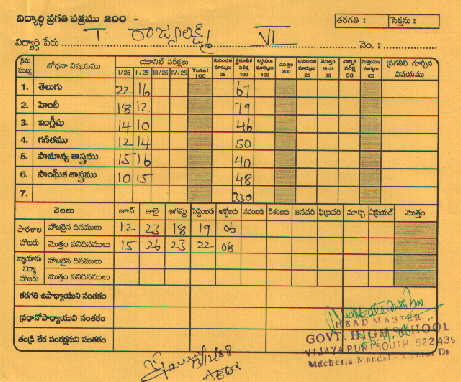 విద్యార్థి ప్రగతి పత్రము 200 -
తరగతి : సెక్షను :
విద్యార్థి పేరు T రాజ్యలక్ష్మి VI నెం. :
క్రమ సంఖ్య బోధనా విషయము యూనిట్ పరీక్షలు
I/25 II/25 III/25 IV/25 Total 100
1. తెలుగు 22 16 67
2. హిందీ 18 12 79
3. ఇంగ్లీషు 14 10 46
4. గణితము 12 14 50
5. సామాన్య శాస్త్రము 15 16 40
6. సాంఘిక శాస్త్రము 10 15 48
7. 330
నెలలు జూన్ జులై ఆగష్టు సెప్టెంబరు అక్టోబరు నవంబరు డిశంబరు జనవరి ఫిబ్రవరి మార్చి ఏప్రియల్ మొత్తం
పాఠశాల హాజరు హాజరైన దినములు 12 23 18 19 06
మొత్తం పనిదినములు 15 26 23 22 08
హాజరైన దినములు
మొత్తం పనిదినములు
తరగతి ఉపాధ్యాయుని సంతకం
ప్రధానోపాధ్యాయుని సంతకం
తండ్రి లేక సంరక్షకుని సంతకం
HEAD MASTER
GOVT. HIGH SCHOOL
VIJAYAPURI SOUTH 522439
Macherla Mandal